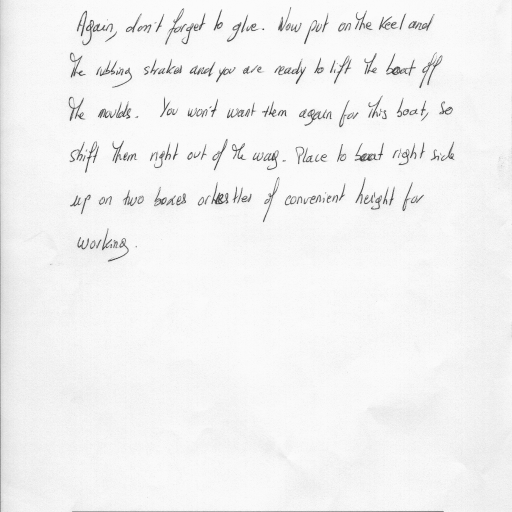 Again, don't forget to glue. Now put on the keel and
the rubbing strakes and you are ready to lift the boat off
the moulds. You won't want them again for this boat, so
shift them right out of the way. Place to boat right side
up on two boxes or trestles of convenient height for
working.